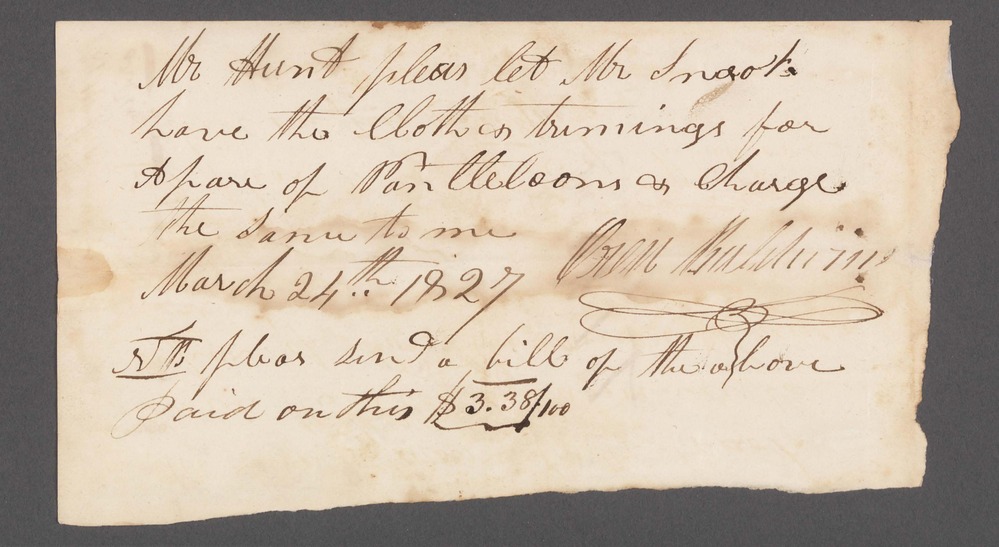 Mr Hunt pleas let Mr
have the Cloth & trimings for
A pare of Pantteloons & Charge
the same to me
March 24th. 1827 Baldwin
pleas send a bill of the above
Paid on this $3.38/100